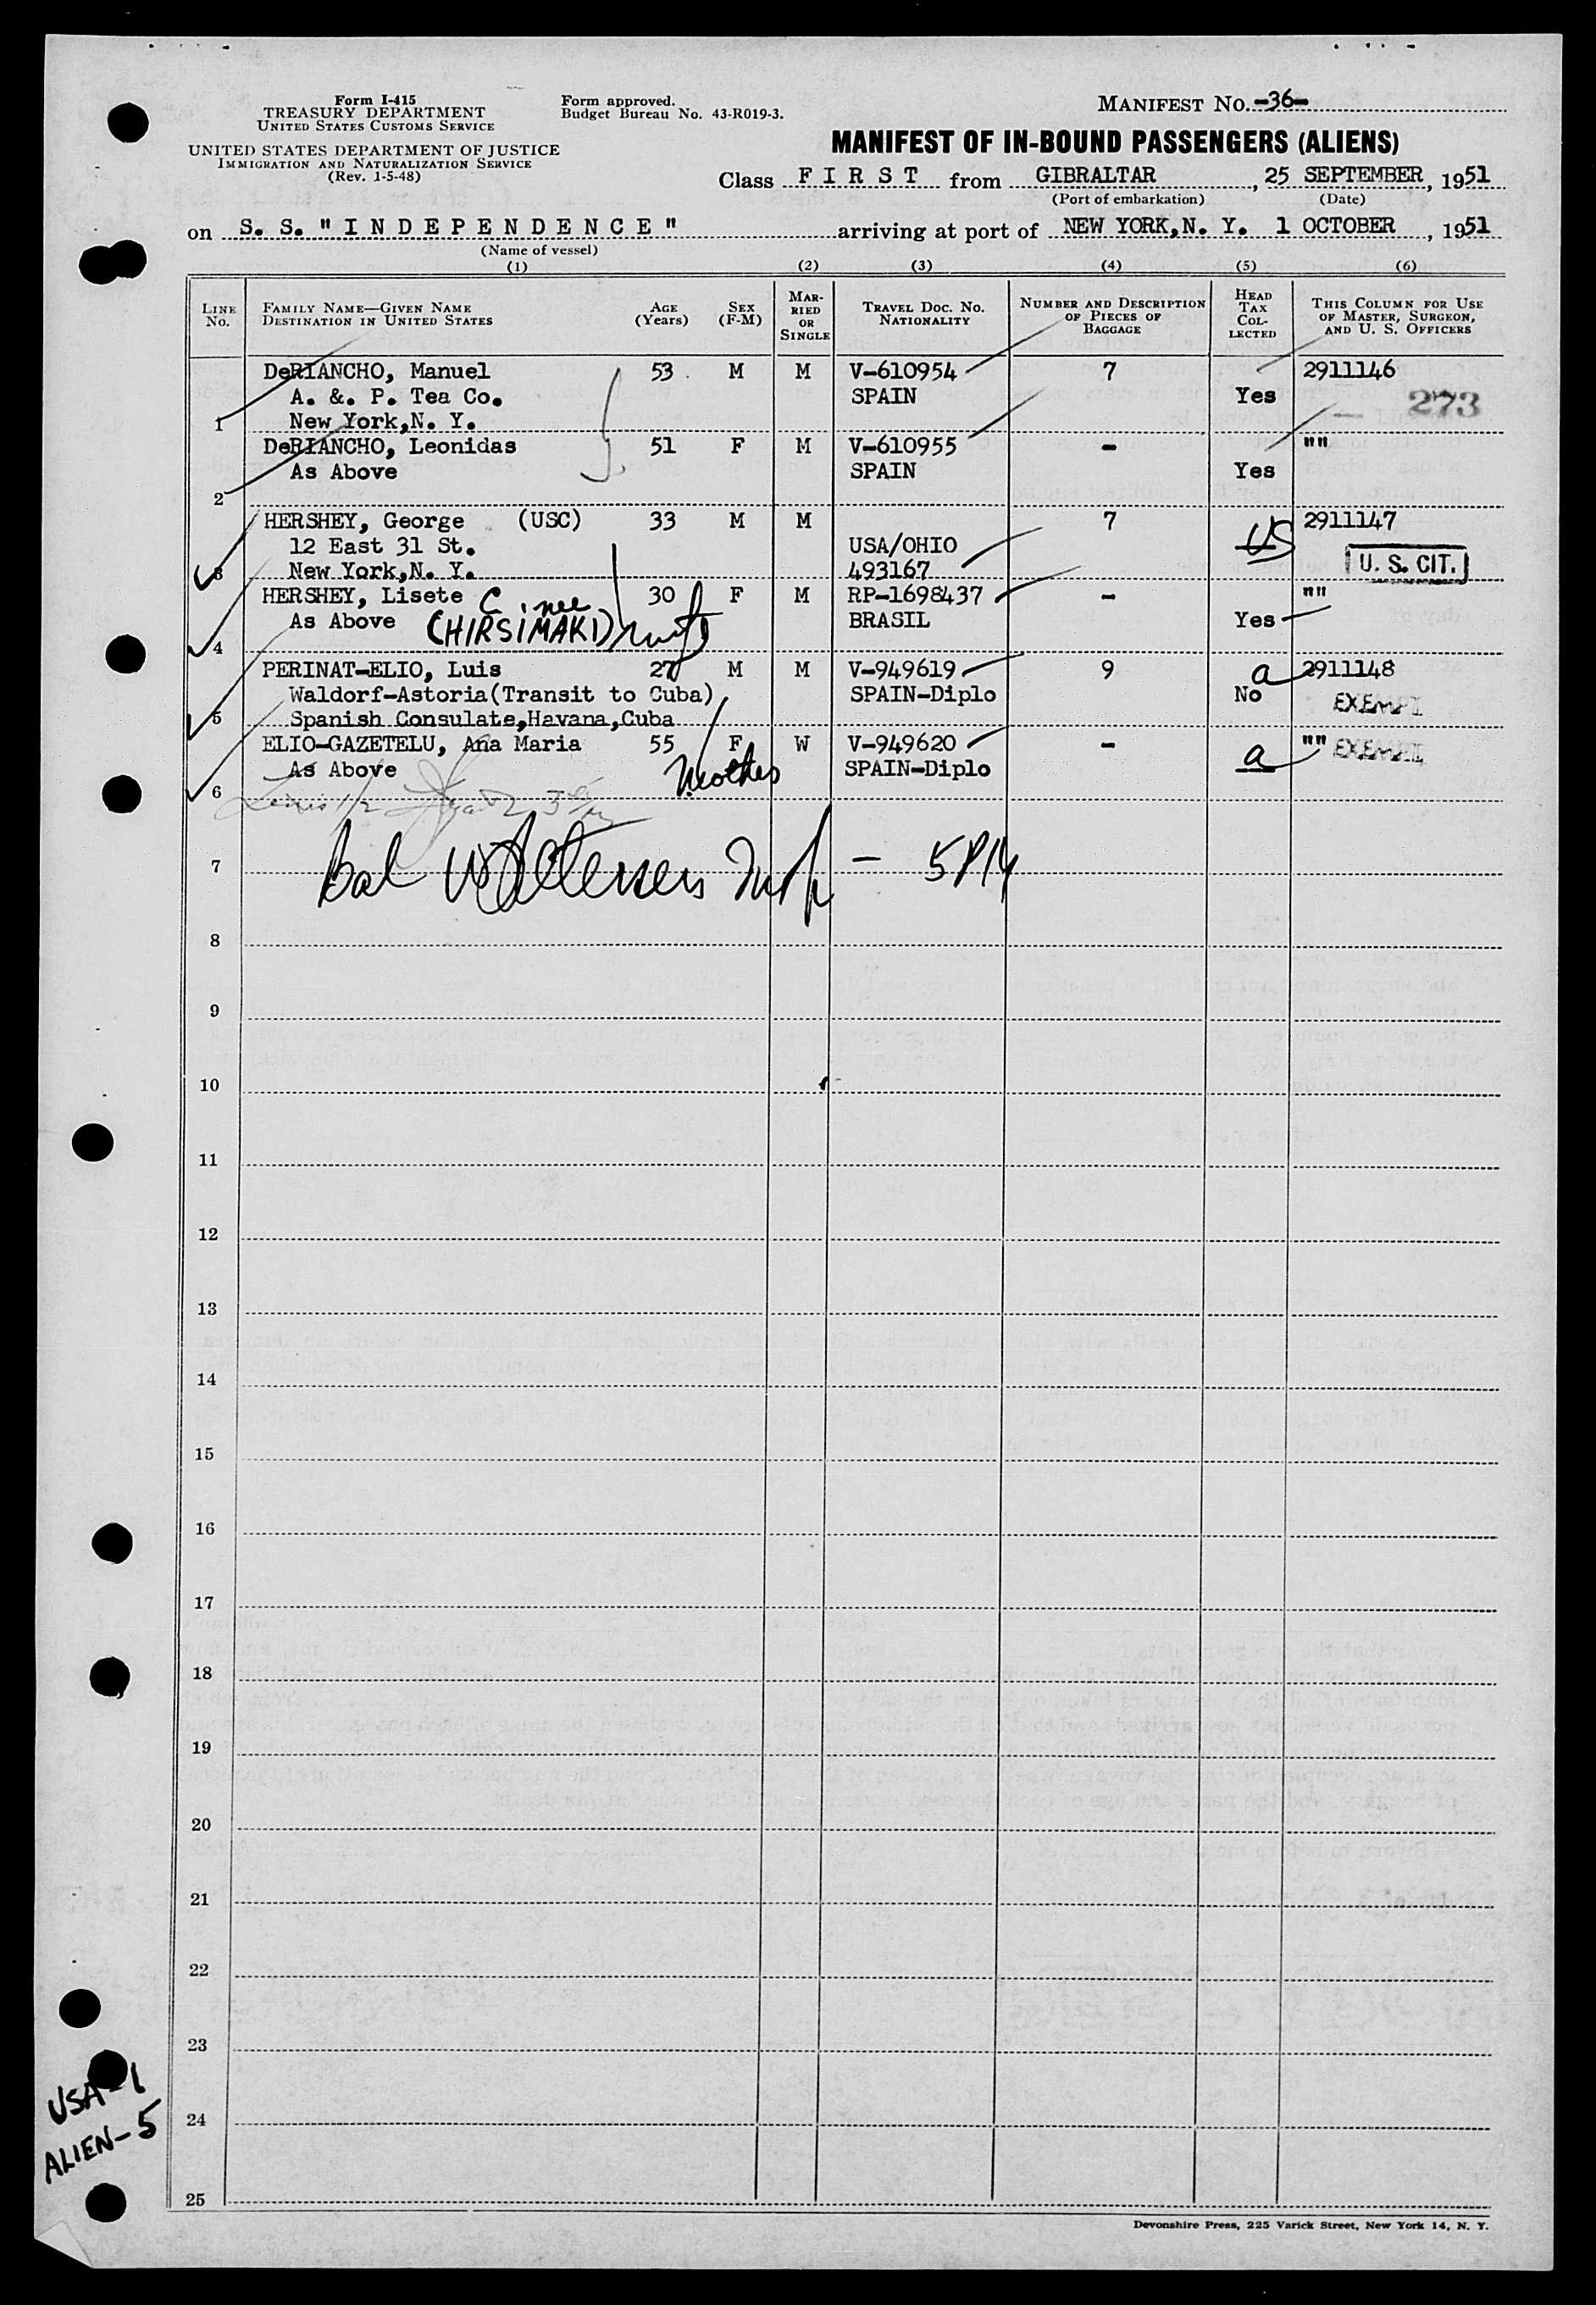 Form I-415
TREASURY DEPARTMENT
UNITED STATES CUSTOMS SERVICE
UNITED STATES DEPARTMENT OF JUSTICE
IMMIGRATION AND NATURALIZATION SERVICE
(Rev. 1-5-48)
Form approved.
Budget Bureau No. 43-R019-3.
MANIFEST NO. -36-
MANIFEST OF IN-BOUND PASSENGERS (ALIENS)
Class FIRST from GIBRALTAR, 25 SEPTEMBER, 1951
(Port of embarkation) (Date)
on S. S. "INDEPENDENCE" arriving at port of NEW YORK, N. Y. 1 OCTOBER, 1951
(Name of vessel)
(1) (2) (3) (4) (5) (6)
LINE NO. FAMILY NAME—GIVEN NAME DESTINATION IN UNITED STATES AGE (Years) SEX (F-M) MARRIED OR SINGLE TRAVEL DOC. NO. NATIONALITY NUMBER AND DESCRIPTION OF PIECES OF BAGGAGE HEAD TAX COLLECTED THIS COLUMN FOR USE OF MASTER, SURGEON, AND U. S. OFFICERS
DeRIANCHO, Manuel 53 M M V-610954 7 2911146
A. &. P. Tea Co. SPAIN Yes 273
1 New York,N. Y.
DeRIANCHO, Leonidas 51 F M V-610955 - ""
As Above SPAIN Yes
2
HERSHEY, George (USC) 33 M M 7 2911147
12 East 31 St. USA/OHIO US U. S. CIT.
3 New York,N. Y. 493167
HERSHEY, Lisete C. nee 30 F M RP-1698437 - ""
As Above (HIRSIMAKI) wife BRASIL Yes
4
PERINAT-ELIO, Luis 27 M M V-949619 9 a 2911148
Waldorf-Astoria(Transit to Cuba) SPAIN-Diplo No EXEMPT
5 Spanish Consulate,Havana,Cuba
ELIO-GAZETELU, Ana Maria 55 F W V-949620 - a "" EXEMPT
As Above Mother SPAIN-Diplo
6
7 - 5P14
8
9
10
11
12
13
14
15
16
17
18
19
20
21
22
23
24
25
USA-1
ALIEN-5
Devonshire Press, 225 Varick Street, New York 14, N. Y.